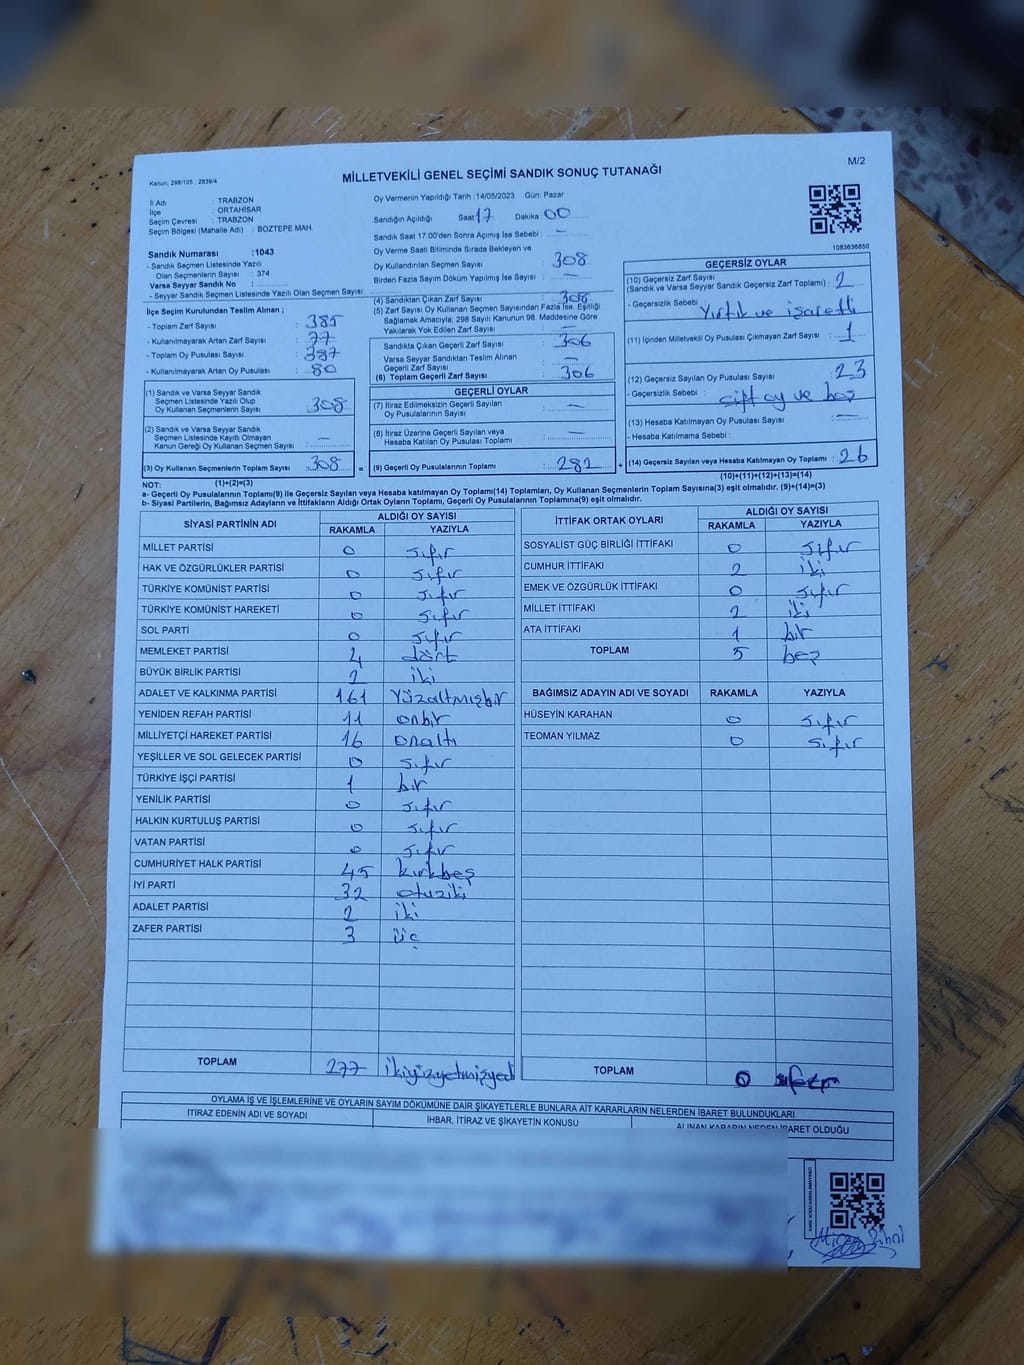 M/2
Kanun: 298/105 ; 2839/4
MİLLETVEKİLİ GENEL SEÇİMİ SANDIK SONUÇ TUTANAĞI
İl Adı : TRABZON
İlçe : ORTAHİSAR
Seçim Çevresi : TRABZON
Seçim Bölgesi (Mahalle Adı) : BOZTEPE MAH.
Sandık Numarası :1043
- Sandık Seçmen Listesinde Yazılı
Olan Seçmenlerin Sayısı : 374
Varsa Seyyar Sandık No :
- Seyyar Sandık Seçmen Listesinde Yazılı Olan Seçmen Sayısı:
İlçe Seçim Kurulundan Teslim Alınan ;
- Toplam Zarf Sayısı : 385
- Kullanılmayarak Artan Zarf Sayısı : 77
- Toplam Oy Pusulası Sayısı : 387
- Kullanılmayarak Artan Oy Pusulası : 80
(1) Sandık ve Varsa Seyyar Sandık
Seçmen Listesinde Yazılı Olup
Oy Kullanan Seçmenlerin Sayısı : 308
(2) Sandık ve Varsa Seyyar Sandık
Seçmen Listesinde Kayıtlı Olmayan
Kanun Gereği Oy Kullanan Seçmen Sayısı : —
(3) Oy Kullanan Seçmenlerin Toplam Sayısı : 308
Oy Vermenin Yapıldığı Tarih : 14/05/2023 Gün: Pazar
Sandığın Açıldığı Saat: 17 Dakika: 00
Sandık Saat 17:00'den Sonra Açımış İse Sebebi : —
Oy Verme Saati Bitiminde Sırada Bekleyen ve
Oy Kullandırılan Seçmen Sayısı : 308
Birden Fazla Sayım Döküm Yapılmış İse Sayısı : —
(4) Sandıktan Çıkan Zarf Sayısı : 308
(5) Zarf Sayısı Oy Kullanan Seçmen Sayısından Fazla İse, Eşitliği
Sağlamak Amacıyla, 298 Sayılı Kanunun 98. Maddesine Göre
Yakılarak Yok Edilen Zarf Sayısı : —
Sandıkta Çıkan Geçerli Zarf Sayısı : 306
Varsa Seyyar Sandıktan Teslim Alınan
Geçerli Zarf Sayısı : —
(6) Toplam Geçerli Zarf Sayısı : 306
GEÇERLİ OYLAR
(7) İtiraz Edilmeksizin Geçerli Sayılan
Oy Pusulalarının Sayısı : —
(8) İtiraz Üzerine Geçerli Sayılan veya
Hesaba Katılan Oy Pusulası Toplamı : —
= (9) Geçerli Oy Pusulalarının Toplamı : 282 +
1083636850
GEÇERSİZ OYLAR
(10) Geçersiz Zarf Sayısı
(Sandık ve Varsa Seyyar Sandık Geçersiz Zarf Toplamı) : 2
- Geçersizlik Sebebi : Yırtık ve işaretli
(11) İçinden Milletvekili Oy Pusulası Çıkmayan Zarf Sayısı : 1
(12) Geçersiz Sayılan Oy Pusulası Sayısı : 23
- Geçersizlik Sebebi : çift oy ve boş
(13) Hesaba Katılmayan Oy Pusulası Sayısı : —
- Hesaba Katılmama Sebebi :
(14) Geçersiz Sayılan veya Hesaba Katılmayan Oy Toplamı : 26
NOT: (1)+(2)=(3) (10)+(11)+(12)+(13)=(14)
a- Geçerli Oy Pusulalarının Toplamı(9) ile Geçersiz Sayılan veya Hesaba katılmayan Oy Toplamı(14) Toplamları, Oy Kullanan Seçmenlerin Toplam Sayısına(3) eşit olmalıdır. (9)+(14)=(3)
b- Siyasi Partilerin, Bağımsız Adayların ve İttifakların Aldığı Ortak Oyların Toplamı, Geçerli Oy Pusulalarının Toplamına(9) eşit olmalıdır.
SİYASİ PARTİNİN ADI ALDIĞI OY SAYISI
RAKAMLA YAZIYLA
MİLLET PARTİSİ 0 sıfır
HAK VE ÖZGÜRLÜKLER PARTİSİ 0 sıfır
TÜRKİYE KOMÜNİST PARTİSİ 0 sıfır
TÜRKİYE KOMÜNİST HAREKETİ 0 sıfır
SOL PARTİ 0 sıfır
MEMLEKET PARTİSİ 4 dört
BÜYÜK BİRLİK PARTİSİ 2 iki
ADALET VE KALKINMA PARTİSİ 161 Yüzaltmışbir
YENİDEN REFAH PARTİSİ 11 onbir
MİLLİYETÇİ HAREKET PARTİSİ 16 onaltı
YEŞİLLER VE SOL GELECEK PARTİSİ 0 sıfır
TÜRKİYE İŞÇİ PARTİSİ 1 bir
YENİLİK PARTİSİ 0 sıfır
HALKIN KURTULUŞ PARTİSİ 0 sıfır
VATAN PARTİSİ 0 sıfır
CUMHURİYET HALK PARTİSİ 45 kırkbeş
İYİ PARTİ 32 otuziki
ADALET PARTİSİ 2 iki
ZAFER PARTİSİ 3 üç
TOPLAM 277 ikiyüzyetmişyedi
İTTİFAK ORTAK OYLARI ALDIĞI OY SAYISI
RAKAMLA YAZIYLA
SOSYALİST GÜÇ BİRLİĞİ İTTİFAKI 0 sıfır
CUMHUR İTTİFAKI 2 iki
EMEK VE ÖZGÜRLÜK İTTİFAKI 0 sıfır
MİLLET İTTİFAKI 2 iki
ATA İTTİFAKI 1 bir
TOPLAM 5 beş
BAĞIMSIZ ADAYIN ADI VE SOYADI RAKAMLA YAZIYLA
HÜSEYİN KARAHAN 0 sıfır
TEOMAN YILMAZ 0 sıfır
TOPLAM 0
OYLAMA İŞ VE İŞLEMLERİNE VE OYLARIN SAYIM DÖKÜMÜNE DAİR ŞİKAYETLERLE BUNLARA AİT KARARLARIN NELERDEN İBARET BULUNDUKLARI
İTİRAZ EDENİN ADI VE SOYADI
İHBAR, İTİRAZ VE ŞİKAYETİN KONUSU
ALINAN KARARIN NEDEN İBARET OLDUĞU